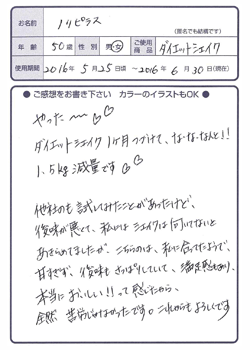 お名前 イリピラス
(匿名でも結構です)
年齢 50歳 性別 男・女 ご使用商品 ダイエットシェイク
使用期間 2016年5月25日頃〜2016年6月30日(現在)
●ご感想をお書き下さい カラーのイラストもOK●
やった〜〜♡♡
ダイエットシェイク1ヶ月つづけて、な・な・なんと!!
1.5kg減量です♡
他社のも試してみたことがあったけど、
後味が悪くて、私にはシェイクは向いてないと
あきらめてましたが、こちらのは、私に合ってたようで、
甘すぎず、後味もさっぱりしていて、満足感もあり、
本当においしい!!って感じたから、
全然苦労はなかったです。これからもよろしくです